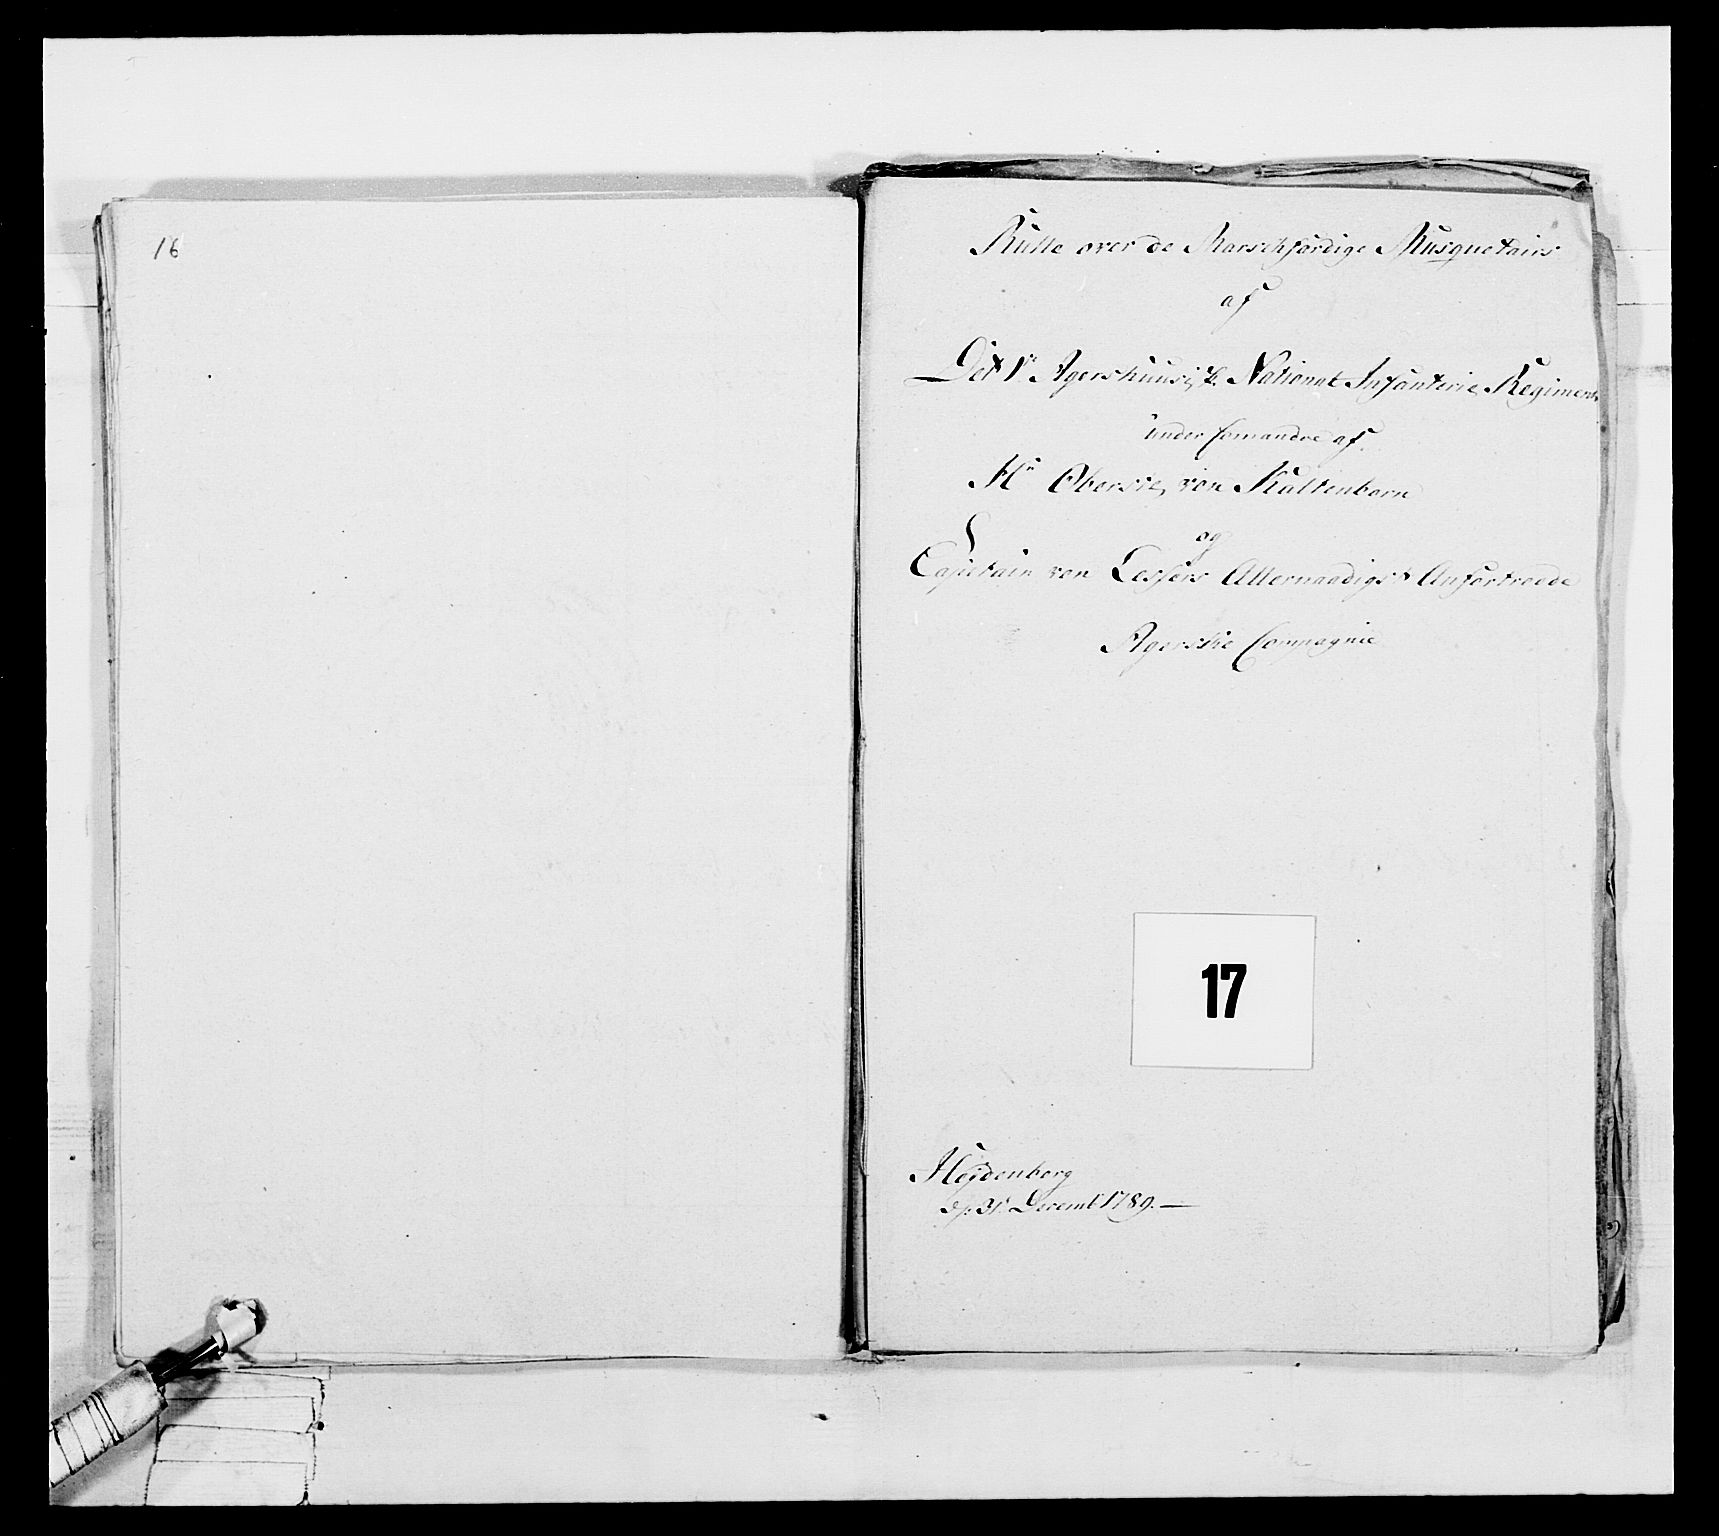 16
Rulle over de Marschfærdige Musquetairs
af
Det 1te Agershuusiske National Infanterie Regiment
under Comando af
Hr Oberste von Kaltenborn
og
Capitain von Lessers Allernaadigst Anfortroede
Agerske Compagnie
17
Heydenberg
d. 31te Decembr 1789.